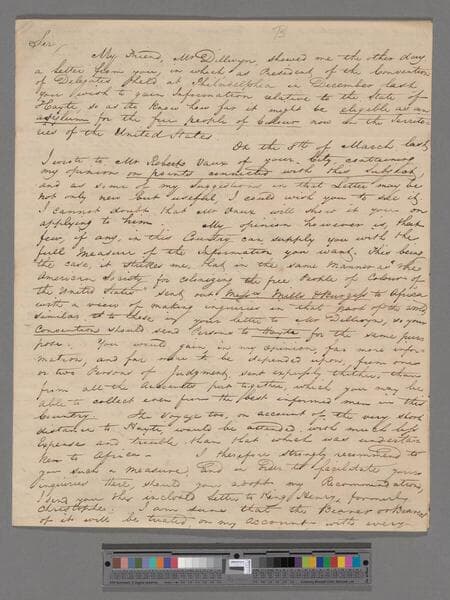 B
Sir,
My Friend, Mr Dillwyn, showed me the other day
a letter from you, in which as President of the Convention
of Delegates held at Philadelphia in December last
you wish to gain Information relative to the State of
Hayti, so as to know how far it might be eligible as an
asylum for the free people of Colour now in the Territo-
ries of the United States
On the 8th of March last,
I wrote to Mr Roberts Vaux of your City, containing
my opinion on points connected with this Subject,
and as some of my Suggestions in that Letter may be
not only new but useful, I could wish you to see it.
I cannot doubt that Mr Vaux will show it you on
applying to him. My opinion however is, that
few, if any, in this Country can supply you with the
full Measure of the Information you want. This being
the case, it strikes me, that in the same Manner as the
American Society for colonizing the free People of Colour of
the United States" sent out Messrs Mills & Burgess to Africa
with a view of making inquiries in that part of the world
similar to those in your letter to Mr Dillwyn, so your
Convention should send Persons to Hayti for the same pur-
pose. You would gain in my opinion, far more infor-
mation, and far more to be depended upon, from one
or two Persons of Judgment, sent expressly thither, than
from all the Accounts put together, which you may be
able to collect even from the best informed men in this
Country. The Voyage too, on account of the very short
distance to Hayti, would be attended with much less
Expense and trouble than that which was underta-
ken to Africa - I therefore strongly recommend to
you such a measure, and in Order to facilitate your
inquiries there, should you adopt my Recommendation,
I send you this inclosed Letter to King Henry, formerly
Christophe. I am sure that the Bearer or Bearers
of it will be treated on my Account with every